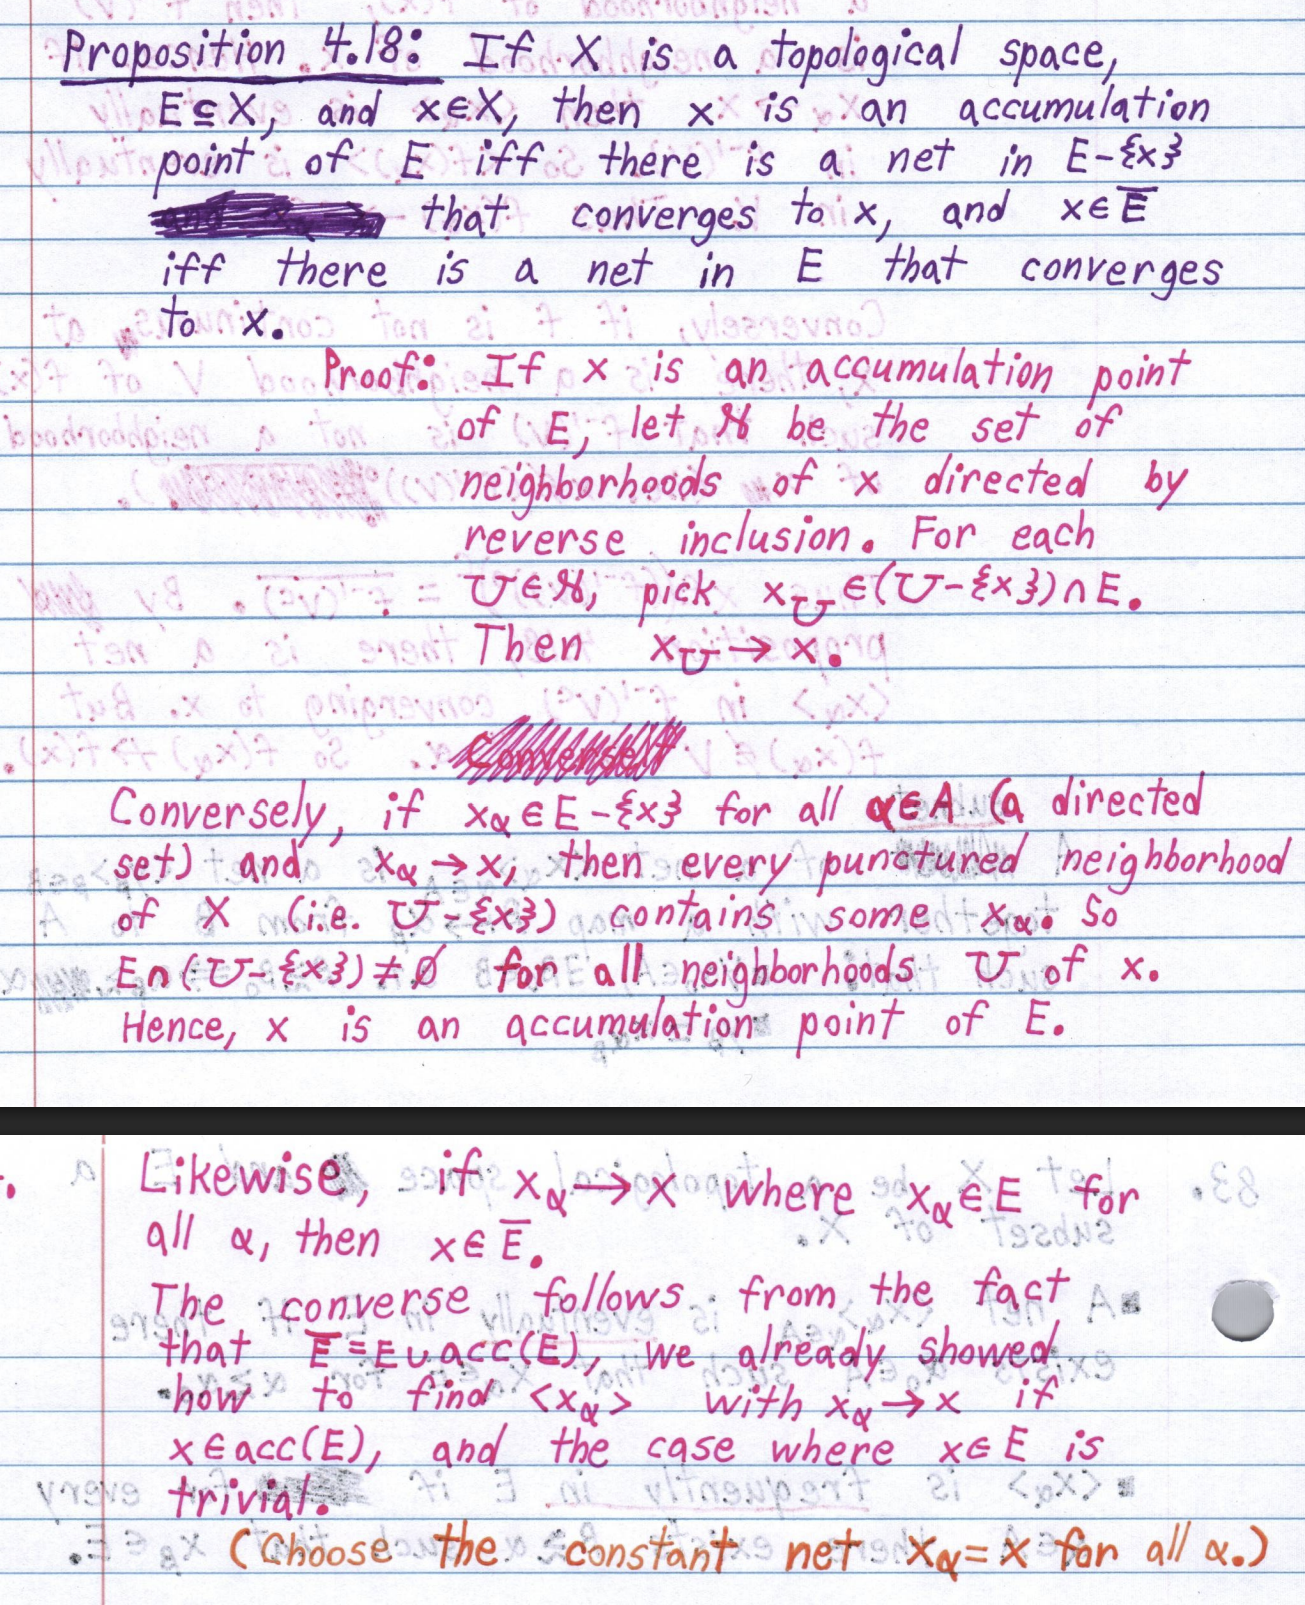 Proposition 4.18: If X is a topological space,
E⊆X, and x∈X, then x is an accumulation
point of E iff there is a net in E-{x}
that converges to x, and x∈E̅
iff there is a net in E that converges
to x.
Proof: If x is an accumulation point
of E, let 𝒩 be the set of
neighborhoods of x directed by
reverse inclusion. For each
U∈𝒩, pick x_U∈(U-{x})∩E.
Then x_U→x.
Conversely, if x_α∈E-{x} for all α∈A (a directed
set) and x_α→x, then every punctured neighborhood
of X (i.e. U-{x}) contains some x_α. So
E∩(U-{x})≠∅ for all neighborhoods U of x.
Hence, x is an accumulation point of E.
Likewise, if x_α→x where x_α∈E for
all α, then x∈E̅.
The converse follows from the fact
that E̅=E∪acc(E), we already showed
how to find <x_α> with x_α→x if
x∈acc(E), and the case where x∈E is
trivial.
(Choose the constant net x_α=x for all α.)